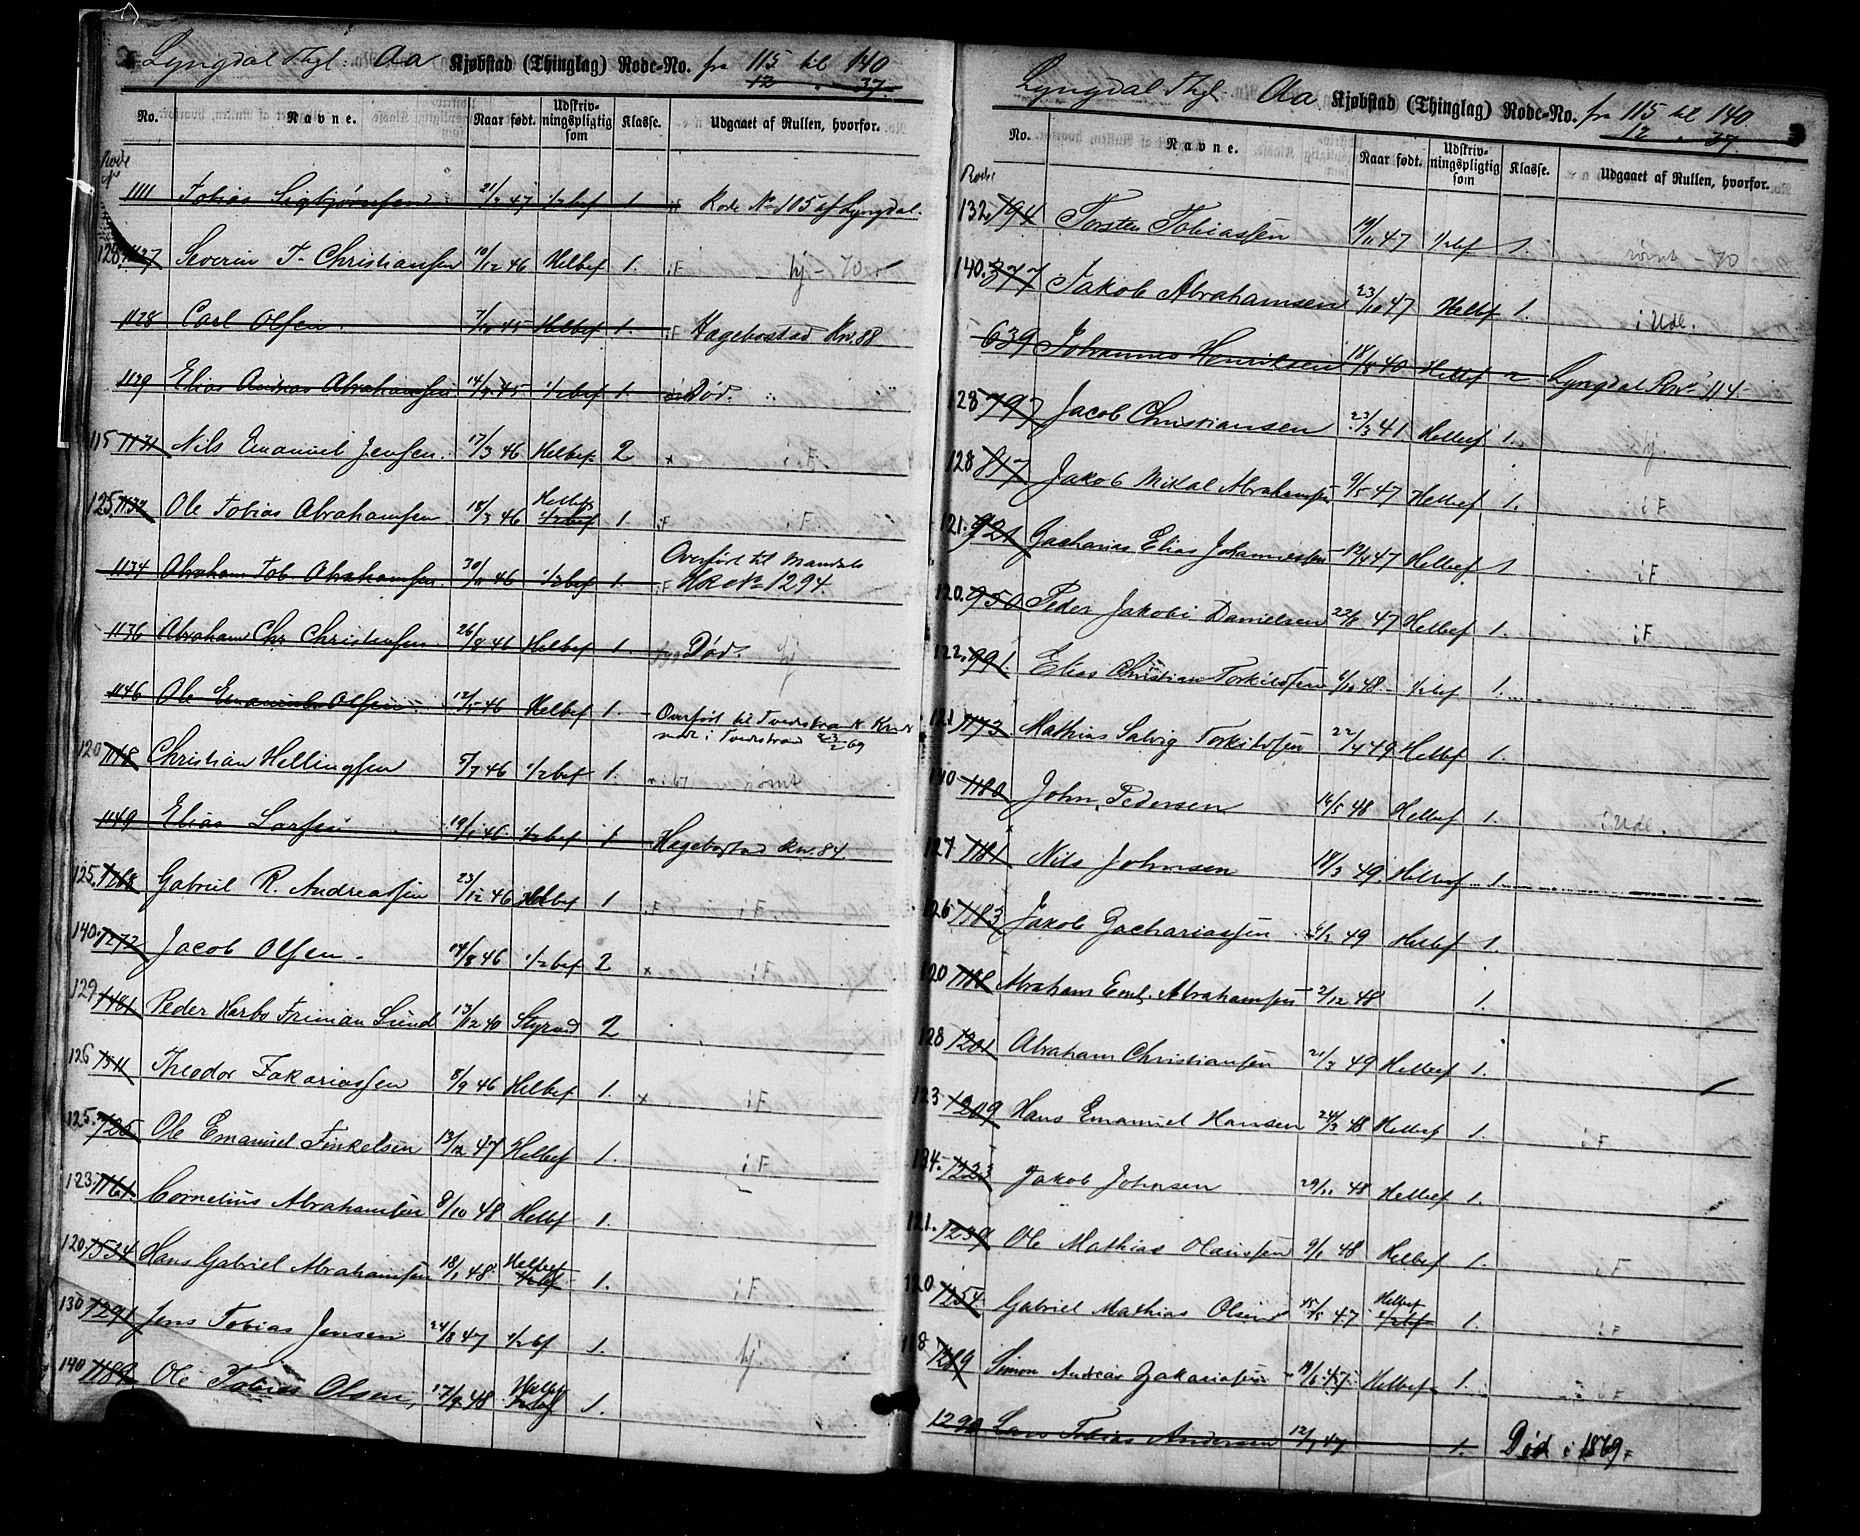 2 Lyngdal Thgl. Aa Kjøbstad (Thinglag) Rode-No. fra 115 til 140
12 - 37.
No. Navne. Naar født. Udskriv-ningspligtig som Klasse. Udgaaet af Rullen, hvorfor.
Rode
N
1111 Tobias Sigbjørnsen 21/2 47 1/2bef 1. iF Rode No 105 af Lyngdal.
128 1127 Severin T. Christiansen 10/12 46 Helbef 1. iF hj - 70
1128 Carl Olsen 7/10 45 Helbef 1. iF Hægebostad Rn. 88
1129 Elias Andreas Abrahamsen 14/9 45 1/2bef 1. Død.
115 1131 Nils Emanuel Jensen. 17/3 46 Helbef. 2 x i F.
125. 1132 Ole Tobias Abrahamsen 18/3 46 Helbef 1/2bef 1. iF i F.
1134 Abraham Tob. Abrahamsen 30/11 46 1/2bef 1. iF Overført til Mandals
HR No 1294.
1136 Abraham Chr Christensen 26/8 46 Helbef 1. Død. hj
1146 Ole Emanuel Olsen 12/5 46 Helbef 1. Overført til Tvedestrand
i Tvedestrand 23/2 69
120 1148 Christian Hellingsen 5/7 46 1/2bef 1. rømt
1149 Elias Larsen 19/1 46 1/2bef 1 Hægebostad Rn. 84.
125. 1168 Gabriel R. Andreassen 23/12 46 Helbef 1 iF i F
140. 1272 Jacob Olsen 14/8 46 1/2bef 2 x i F
129 1481 Peder Harbo Friman Lund 13/12 40 Styrmd 2
126 1511 Theodor Zakariassen 8/9 46 Helbef 1. x i F
125. 725 Ole Emanuel Finkelsen 13/12 47 Helbef 1. i F
123. 1161 Cornelius Abrahamsen 8/10 48 Helbf 1.
120. 1534 Hans Gabriel Abrahamsen 18/1 48 Helbef 1/2bef 1. i F
130 1291 Jens Tobias Jensen 24/8 47 1/2bf 1. hj
140 1189 Ole Tobias Olsen, 17/9 48 Helbef 1/2bef 1.
Lyngdal Thgl. Aa Kjøbstad (Thinglag) Rode-No. fra 115 til 140 3
12 - 37.
No. Navne. Naar født. Udskriv-ningspligtig som Klasse. Udgaaet af Rullen, hvorfor.
Rode
132. 194 Torsten Tobiassen 19/11 47 1/2bef 1. rømt - 70
140. 377 Jakob Abrahamsen 23/10 47 Helbf 1. i Udl.
639 Johannes Henriksen 18/8 40 Helbef 2 Lyngdal Rn 114.
128 797 Jacob Christiansen 23/3 41 Helbef 1. hj
128 817 Jakob Mikal Abrahamsen 9/5 47 Helbef 1. i F
121. 921 Zacharias Elias Johannessen 12/4 47 Helbef 1 i F
120. 950 Peder Jakobi Danielsen 22/8 47 Helbef 1. i F
122. 991. Elias Christian Torkildsen 6/10 48 1/2bef 1.
121 1173 Mathias Salvig Torkildsen 22/4 49 Helbef 1.
140 1180 John Pedersen 14/5 48 Helbef 1. i Udl.
127 1181 Nils Johnsen 18/3 49. Helbef 1.
126 1183 Jakob Zachariassen 6/2 49 Helbef 1.
120 1188 Abraham Eml. Abrahamsen 2/12 48 1.
128 1201 Abraham Christiansen 21/3 49 Helbef 1.
123 1209 Hans Emanuel Hansen 24/3 48 Helbef 1. i F
134. 1223 Jakob Johnsen 29/11 48 Helbef 1.
121. 1239 Ole Mathias Olaussen 9/1 48 Helbef 1. i F
120 1254 Gabriel Mathias Olsen 15/5 47 Helbef 1/2bef 1. i F
118 1289 Simon Andreas Zakariasen 19/6 47 Helbef 1. i F
1290 Lars Tobias Andersen 12/7 47 1. Død i 1869. F